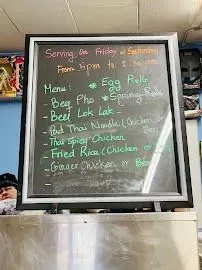 Serving On Friday & Saturday
From 5pm to 8:30 pm
Menu: * Egg Rolls
- Beef Pho * Spring Rolls
- Beef Lok Lak
- Pad Thai Noodle (Chicken or
Beef)
- Thai Spicy Chicken
- Fried Rice (Chicken or
- Ginger Chicken or Beef
-